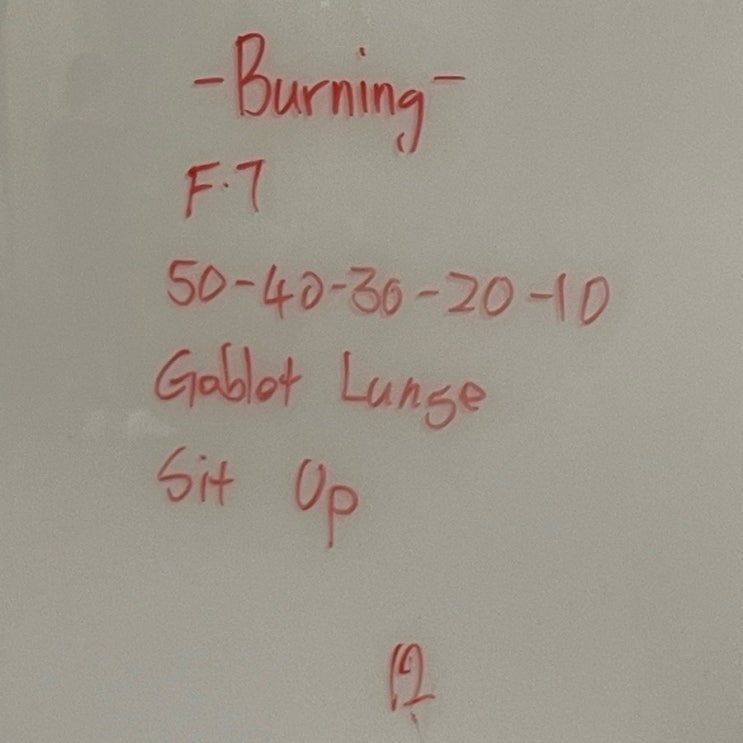 -Burning-
F.T
50-40-30-20-10
Goblot Lunge
Sit Up